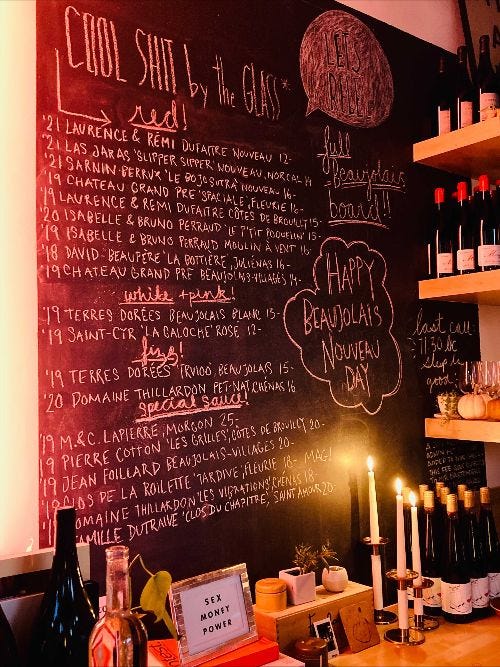 COOL SHIT by the GLASS*
red!
'21 LAURENCE & RÉMI DUFAITRE NOUVEAU 12-
'21 LAS JARAS 'SLIPPER SIPPER' NOUVEAU, NORCAL 14
'21 SARNIN-BERRUX 'LE BOJOSUTRA' NOUVEAU 16-
'19 CHATEAU GRAND PRE 'SPACIALE', FLEURIE 16-
'19 LAURENCE & REMI DUFAITRE CÔTES DE BROUILLY 15-
'20 ISABELLE & BRUNO PERRAUD 'LE P'TIT POQUELIN' 15-
'19 ISABELLE & BRUNO PERRAUD MOULIN À VENT 16-
'18 DAVID 'BEAUPÈRE' LA BOTTIÈRE, JULIÉNAS 16-
'19 CHATEAU GRAND PRÉ BEAUJOLAIS-VILLAGES 14-
white + pink!
'19 TERRES DORÉES BEAUJOLAIS BLANC 15-
'19 SAINT-CYR 'LA GALOCHE' ROSE 12-
fizz!
'19 TERRES DORÉES 'FRV100', BEAUJOLAIS 15-
'20 DOMAINE THILLARDON PET-NAT, CHÉNAS 16
special sauce!
'19 M.&C. LAPIERRE, MORGON 25-
'19 PIERRE COTTON 'LES GRILLÉS', CÔTES DE BROUILLY 20-
'19 JEAN FOILLARD BEAUJOLAIS-VILLAGES 20-
'19 CLOS DE LA ROILETTE 'TARDIVE', FLEURIE 18- MAG!
DOMAINE THILLARDON 'LES VIBRATIONS' CHÉNAS 18
CAMILLE DUTRAIVE 'CLOS DU CHAPITRE', SAINT AMOUR 20-
LETS
full
Beaujolais
board!!
HAPPY
BEAUJOLAIS
NOUVEAU
DAY
last call
11:30
good
SEX
MONEY
POWER